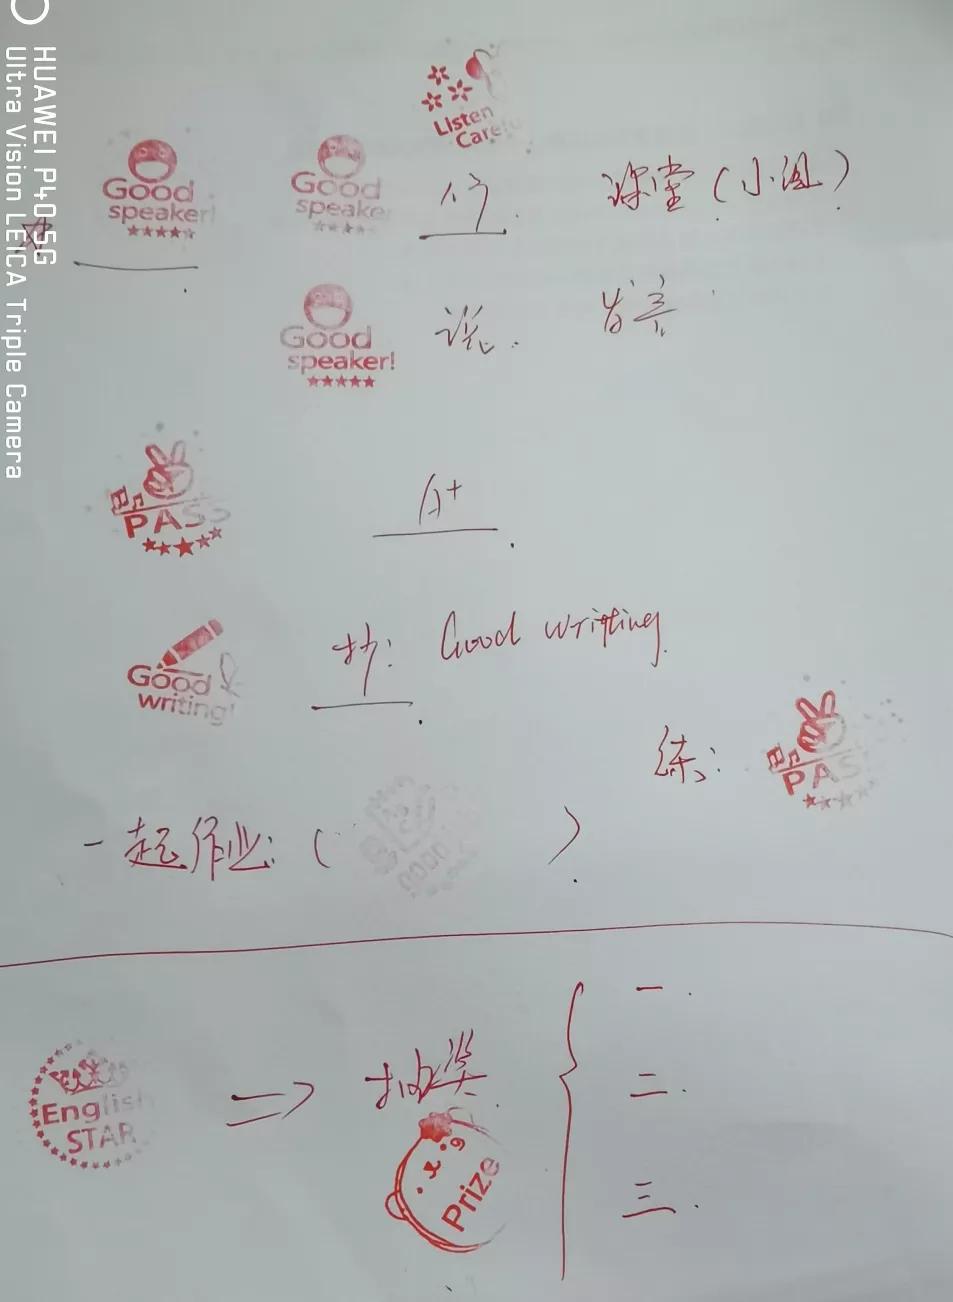 HUAWEI P40 5G
Ultra Vision LEICA Triple Camera
Listen
Good
speaker!
Good
speake
课堂(小组)
Good
speaker!
说.
发言
PASS
A+
Good
writing!
抄: Good writing.
练:
PAS
一起作业: ( GOOD )
English
STAR
=> 抽奖
Prize
一.
二.
三.